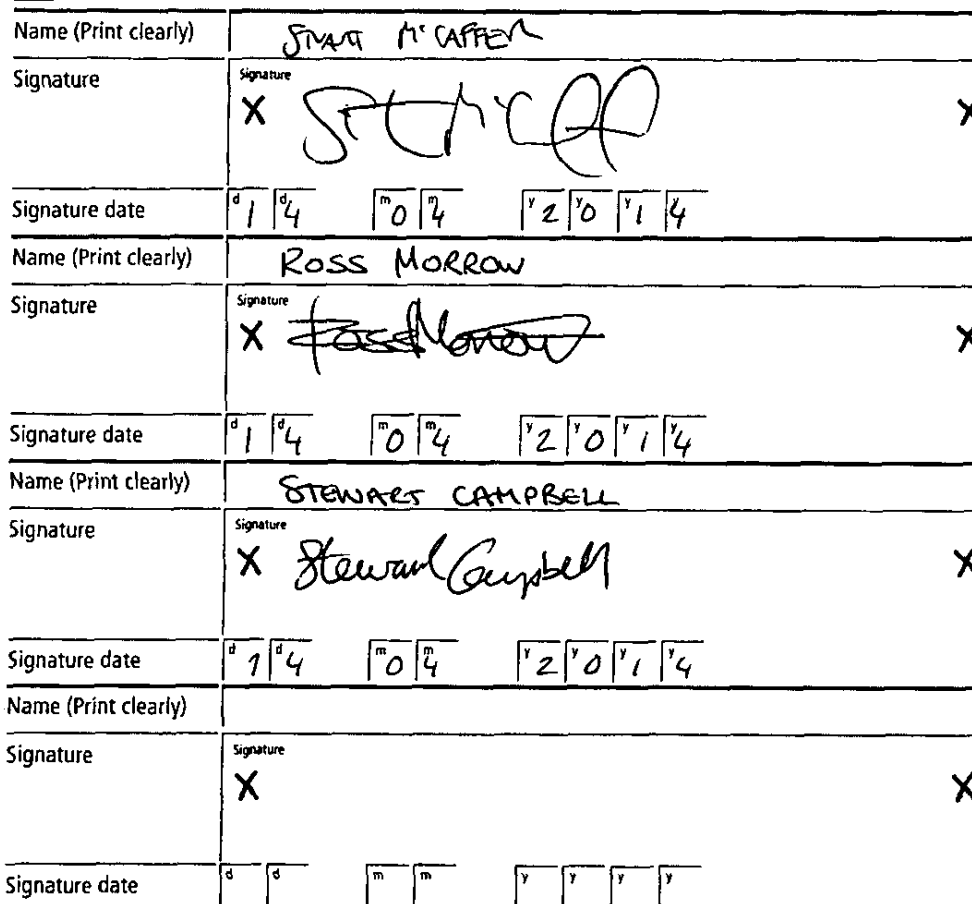 Name (Print clearly) STUART McCAFFER
Signature Signature
X X
Signature date d1 d4 m0 m4 y2 y0 y1 y4
Name (Print clearly) ROSS MORROW
Signature Signature
X Ross Morrow X
Signature date d1 d4 m0 m4 y2 y0 y1 y4
Name (Print clearly) STEWART CAMPBELL
Signature Signature
X Stewart Campbell X
Signature date d1 d4 m0 m4 y2 y0 y1 y4
Name (Print clearly)
Signature Signature
X X
Signature date d d m m y y y y